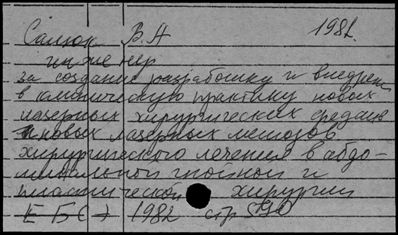 Салюк В.А 1981.
инженер
за создание разработку и внедрен
в клиническую практику новых
лазерных хирургических средств
и новых лазерных методов
хирургического лечения в абдо-
минальной гнойной и
пластической хирургии
Е БСЭ 1982 стр